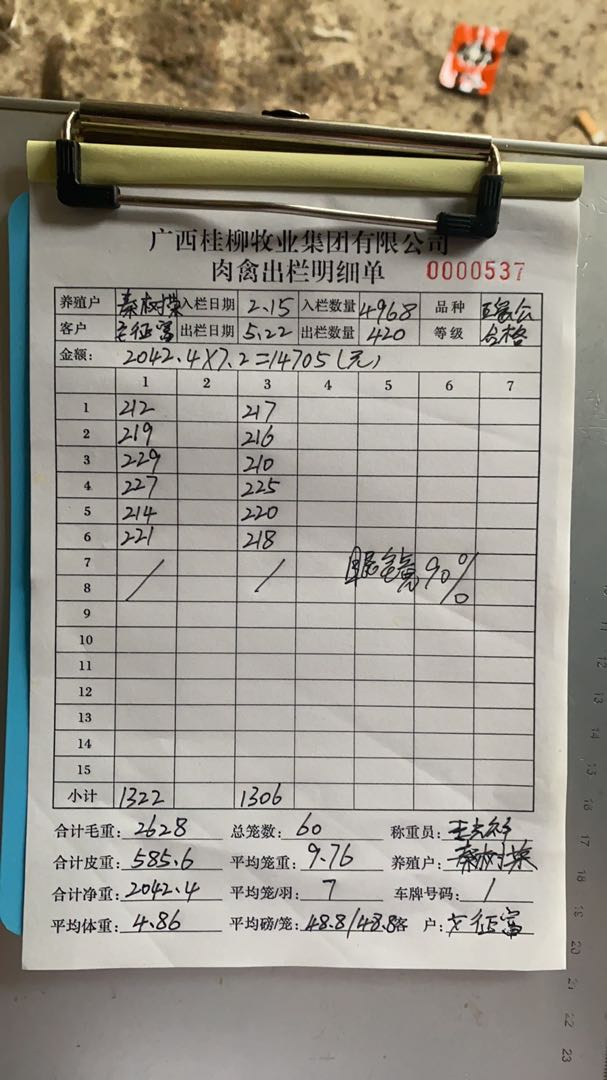 广西桂柳牧业集团有限公司
肉禽出栏明细单 0000537
养殖户 秦树荣 入栏日期 2.15 入栏数量 4968 品种
客户 征富 出栏日期 5.22 出栏数量 420 等级 合格
金额: 2042.4×7.2=14705(元)
1 2 3 4 5 6 7
1 212 217
2 219 216
3 229 210
4 227 225
5 214 220
6 221 218
7 / /
8 90%
9
10
11
12
13
14
15
小计 1322 1306
合计毛重: 2628 总笼数: 60 称重员:
合计皮重: 585.6 平均笼重: 9.76 养殖户: 秦树荣
合计净重: 2042.4 平均笼/羽: 7 车牌号码: 1
平均体重: 4.86 平均磅/笼: 48.8/48.8 客 户: 征富
12
13
14
15
16
17
18
19
20
21
22
23